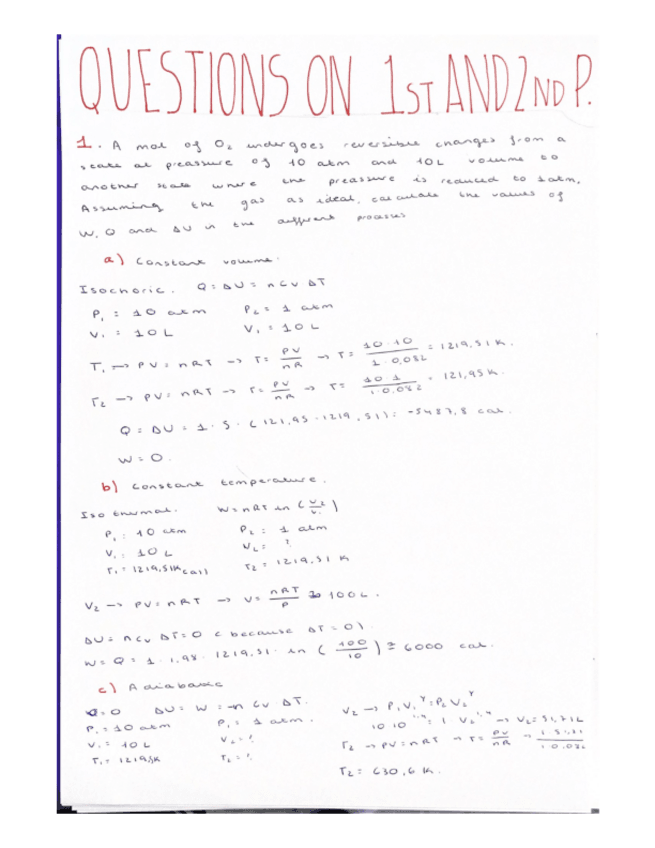 QUESTIONS ON 1ST AND 2ND P.
1. A mol of O₂ undergoes reversible changes from a
state at preassure of 10 atm and 10L volume to
another state where the preassure is reduced to 1atm,
Assuming the gas as ideal, calculate the values of
W, Q and ΔU in the different processes
a) Constant volume.
Isochoric. Q = ΔU = n Cv ΔT
P₁ = 10 atm P₂ = 1 atm
V₁ = 10 L V₁ = 10 L
T₁ → PV = nRT → T = PV/nR → T = 10·10/1·0,082 = 1219,51 K.
T₂ → PV = nRT → T = PV/nR → T = 10·1/1·0,082 = 121,95 K.
Q = ΔU = 1 · 5 · (121,95 - 1219,51) = -5487,8 cal.
W = 0.
b) Constant temperature.
Isothermal. W = nRT ln (V₂/V₁)
P₁ = 10 atm P₂ = 1 atm
V₁ = 10 L V₂ = ?
T₁ = 1219,51K (a) T₂ = 1219,51 K
V₂ → PV = nRT → V = nRT/P 100 L.
ΔU = n Cv ΔT = 0 (because ΔT = 0)
W = Q = 1 · 1,98 · 1219,51 · ln (100/10) ≅ 6000 cal.
c) Adiabatic
Q = 0 ΔU = W = -n Cv ΔT.
P₁ = 10 atm P₁ = 1 atm.
V₁ = 10 L V₂ = ?
T₁ = 1219,5K T₂ = ?
V₂ → P₁V₁^γ = P₂V₂^γ
10·10^1,4 = 1 · V₂^1,4 → V₂ = 51,71L
T₂ → PV = nRT → T = PV/nR → 1·51,71/1·0,082
T₂ = 630,6 K.